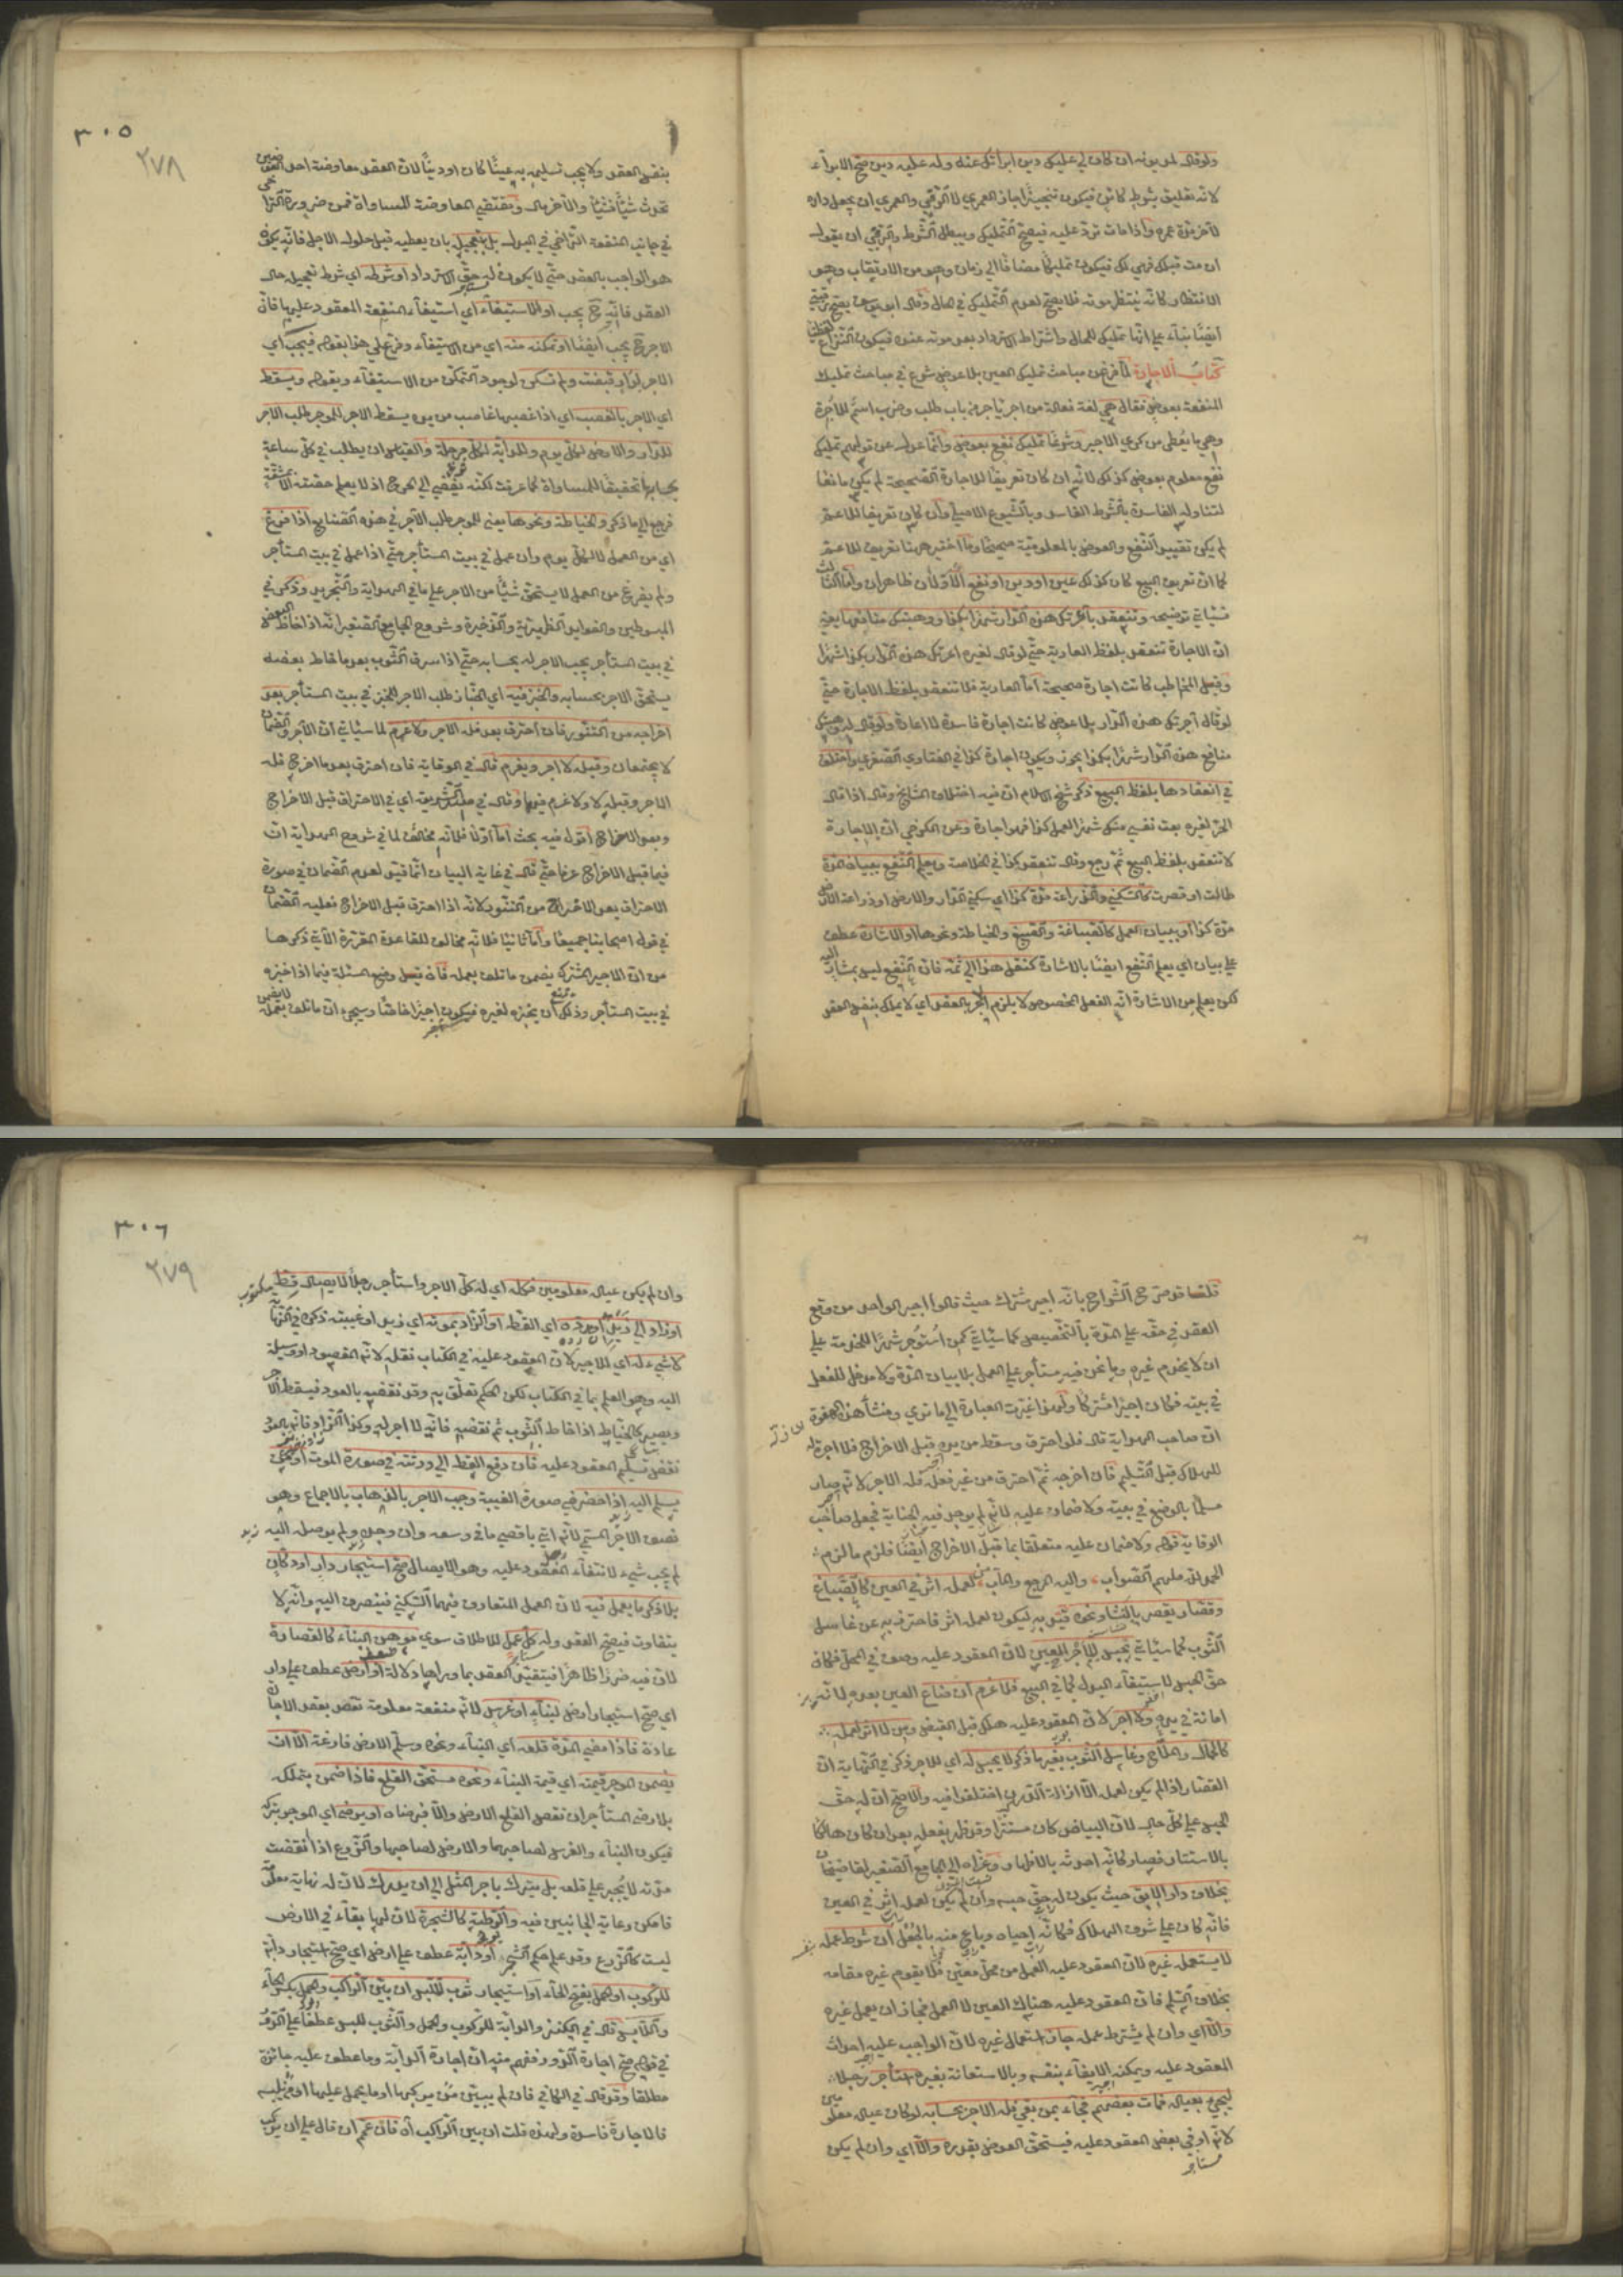 ولو قال لمديونه ان كان لي عليك دين ابرأتك عنه وله عليه دين صح الابراء
لانه تعليق بشرط كائن فيكون تنجيزا جاز العمري لا الرقبي والعمري ان يجعل داره
لآخر مدة عمره واذا مات ترد عليه فيصح التمليك ويبطل الشرط والرقبي ان يقول
ان مت قبلك فهي لك فيكون تمليكا مضافا الي زمان وهو من الارتقاب وهو
الانتظار كانه ينتظر موته فلا يصح لعدم التمليك في الحال وقال ابو يوسف يصح
ايضا بناء علي انها تمليك للحال واشتراط الاسترداد بعد موته عنده فيكون النزاع لفظيا
كتاب الاجارة لما فرغ من مباحث تمليك العين بلا عوض شرع في مباحث تمليك
المنفعة بعوض فقال هي لغة فعالة من اجر يأجر من باب طلب وضرب اسم للاجرة
وهي ما يعطي من كري الاجير وشرعا تمليك نفع بعوض وانما عدل عن قولهم تمليك
نفع معلوم بعوض كذلك لانه ان كان تعريفا للاجارة الصحيحة لم يكن مانعا
لتناوله الفاسدة بالشرط الفاسد وبالشيوع الاصلي وان كان تعريفا للاعم
لم يكن تقييد النفع والعوض بالمعلومية صحيحا وما اختير ههنا تعريف للاعم
كما ان تعريف البيع كان كذلك عين او دين او نفع الاولان ظاهران واما الثالث
فسيأتي توضيحه وتنعقد باعرتك هذه الدار شهرا بكذا ووهبتك منافعها يعني
ان الاجارة تنعقد بلفظ العارية حتي لو قال لغيره اعرتك هذه الدار بكذا شهرا
وقبل المخاطب كانت اجارة صحيحة اما العارية فلا تنعقد بلفظ الاجارة حتي
لو قال آجرتك هذه الدار بلا عوض كانت اجارة فاسدة لا اعارة ولو قال وهبتك
منافع هذه الدار شهرا بكذا يجوز ويكون اجارة كذا في الفتاوي الصغري واختلف
في انعقادها بلفظ البيع ذكر شيخ الاسلام ان فيه اختلاف المشايخ وقال اذا قال
الحر لغيره بعت نفسي منك شهرا لعمل كذا فهو اجارة وعن الكرخي ان الاجارة
لا تنعقد بلفظ البيع ثم رجع وقال تنعقد كذا في الخلاصة ويعلم النفع ببيان المدة
طالت او قصرت كالسكني والزراعة مدة كذا اي سكني الدار والارض او زراعة الارض
مدة كذا او ببيان العمل كالصياغة والصبغ والخياطة ونحوها او الاشارة عطف
علي بيان اي يعلم النفع ايضا بالاشارة كنقل هذا الي ثمه فان النفع ليس بمشار اليه
لكن يعلم من الاشارة انه الفعل المخصوص لا يلزم الاجر بالعقد اي لا يملك بنفس العقد
٣٠٥
٢٧٨
بنفس العقد ولا يجب تسليمه به عينا كان او دينا لان العقد معاوضة احد العوضين
تحدث شيئا فشيئا والآخر مال ومقتضي المعاوضة المساواة فمن ضرورة التراخي
في جانب المنفعة التراخي في البدل بل بتعجيل بان يعطيه قبل حلول الاجل فانه يكون
هو الواجب بالعقد حتي لا يكون له حق الاسترداد او شرطه اي شرط تعجيله حال
العقد فانه ح يجب او الاستيفاء اي استيفاء المنفعة المعقود عليها فان
الاجر ح يجب ايضا او تمكنه منه اي من الاستيفاء وفرع علي هذا بقوله فيجب اي
الاجر لدار قبضت ولم تسكن لوجود التمكن من الاستيفاء وبقوله ويسقط
اي الاجر بالغصب اي اذا غصبها غاصب من يده يسقط الاجر للموجر طلب الاجر
للدار والارض لكل يوم وللدابة لكل مرحلة والقياس ان يطلب في كل ساعة
بحسابها تحقيقا للمساواة كما عرفت لكنه يفضي الي الحرج اذ لا يعلم حصته الا بمشقة
فرجع الي ما ذكر وللخياطة ونحوها يعني للموجر طلب الآجر في هذه الصنايع اذا فرغ
اي من العمل لا لكل يوم وان عمل في بيت المستأجر حتي اذا عمل في بيت المستأجر
ولم يفرغ من العمل لا يستحق شيئا من الاجر علي ما في الهداية والتجريد وذكر في
المبسوطين والفوايد الظهيرية والذخيرة وشروح الجامع الصغير انه اذا خاط البعض
في بيت المستأجر يجب الاجر له بحسابه حتي اذا سرق الثوب بعد ما خاط بعضه
يستحق الاجر بحسابه والخبز فيه اي الخباز طلب الاجر للخبز في بيت المستأجر بعد
اخراجه من التنور فان احترق بعده فله الاجر ولا غرم لما سيأتي ان الاجر والضمان
لا يجتمعان وقبله لا اجر ويغرم قال في الوقاية فان احترق بعد ما اخرج فله
الاجر وقبله لا ولا غرم فيهما وقال في صدر الشريعة اي في الاحتراق قبل الاخراج
وبعد الاخراج اقول فيه بحث اما اولا فلانه مخالف لما في شروح الهداية ان
فيما قبل الاخراج غرما حتي قال في غاية البيان انما قيد لعدم الضمان في صورة
الاحتراق بعد الاخراج من التنور لانه اذا احترق قبل الاخراج فعليه الضمان
في قول اصحابنا جميعا واما ثانيا فلانه مخالف للقاعدة المقررة الآتي ذكرها
من ان الاجير المشترك يضمن ما تلف بعمله فان قيل وضع المسئلة فيما اذا خبزه
في بيت المستأجر وذلك ان يخبزه لغيره فيكون اجيرا خاصا وسيجيء ان ما تلف بعمله لا يضمن
قلنا قد صرح الشراح بانه اجير مشترك حيث قالوا اجير الواحد من وقع
العقد في حقه علي المدة بالتخصيص كما سيأتي كمن استوجر شهرا للخدمة علي
ان لا يخدم غيره وما نحن فيه مستأجر علي العمل بلا بيان المدة ولا مدخل للفعل
في بيته فكان اجيرا مشتركا ولهذا غيرت العبارة الي ما تري ومنشأ هذه
ان صاحب الهداية قال فلو احترق وسقط من يده قبل الاخراج فلا اجر له
للهلاك قبل التسليم فان اخرجه ثم احترق من غير فعله فله الاجر لانه صار
مسلما بالوضع في بيته ولا ضمان عليه لانه لم يوجد فيه الجناية فجعل صاحب
الوقاية قوله ولا ضمان عليه متعلقا بما قبل الاخراج ايضا فلزم ما لزم
الحمد لله ملهم الصواب واليه المرجع والمآب لعمله اثر في العين كالصباغ
وقصار يقصر بالنشا ونحوه قيد به ليكون لعمله اثر فاحترز به عن غاسل
الثوب كما سيأتي يحبس للاجر العين لان المعقود عليه وصف في المحل فكان
حق الحبس لاستيفاء البدل كما في البيع فلا غرم ان ضاع العين بعده لانه
امانة في يده ولا اجر لان المعقود عليه هلك قبل القبض ومن لا اثر لعمله
كالحمال والملاح وغاسل الثوب بغير ما ذكر لا يحبس له اي للاجر ذكر في النهاية ان
القصار اذا لم يكن لعمله الا ازالة الدرن اختلفوا فيه والاصح ان له حق
الحبس علي كل حال لان البياض كان مستترا وقد ظهر بفعله بعد ان كان هالكا
بالاستتار فصار كانه احدثه بالاظهار وعزاه الي الجامع الصغير لقاضيخان
بخلاف راد الآبق حيث يكون له حق حبسه وان لم يكن لعمله اثر في العين
فانه كان علي شرف الهلاك فكانه احياه وباع منه بالجعل ان شرط عمله
لا يستعمل غيره لان المعقود عليه العمل من محل معين فلا يقوم غيره مقامه
بخلاف السلم فان المعقود عليه هناك العين لا العمل فجاز ان يعمل غيره
والا اي وان لم يشترط عمله جاز استعمال غيره لان الواجب عليه احداث
المعقود عليه ويمكنه الايفاء بنفسه وبالاستعانة بغيره استأجر رجلا
ليجيء بعياله فمات بعضهم فجاء بمن بقي فله الاجر بحسابه لو كان عياله معلومين
لانه اوفي بعض المعقود عليه فيستحق العوض بقدره والا اي وان لم يكن
٣٠٦
٢٧٩
وان لم يكن عياله معلومين فكله اي له كل الاجر واستأجر رجلا لايصال قط
او زاد الي زيد ان رده اي القط او الزاد بموته اي زيد او غيبته ذكره في النهاية
لا شيء له اي للاجير لان المعقود عليه في الكتاب نقله لانه المقصود او وسيلة
اليه وهو العلم بما في الكتاب لكن الحكم تعلق به وقد نقضه بالعود فيسقط الاجر
ويصير كالخياط اذا خاط الثوب ثم نقضه فانه لا اجر له وكذا الزاد فانه بالعود
نقض تسليم المعقود عليه فان دفع القط الي ورثته في صورة الموت او من
يسلم اليه اذا حضر في صورة الغيبة وجب الاجر بالذهاب بالاجماع وهو
نصف الاجر المسمي لانه اتي باقصي ما في وسعه وان وجده ولم يوصله اليه
لم يجب شيء لانتفاء المعقود عليه وهو الايصال صح استيجار دار او دكان
بلا ذكر ما يعمل فيه لان العمل المتعارف فيهما السكني فينصرف اليه وانه لا
يتفاوت فيصح العقد وله كل عمل للاطلاق سوي موهن البناء كالقصارة
لان فيه ضررا ظاهرا فيتقيد العقد بما وراءها دلالة او ارض عطف علي دار
اي صح استيجار ارض لبناء او غرس لانه منفعة معلومة تقصد بعقد الاجارة
عادة فاذا مضي المدة قلعه اي البناء ونحوه وسلم الارض فارغة الا ان
يضمن الموجر قيمته اي قيمة البناء ونحوه مستحق القلع فاذا ضمن يتملكه
بلا رضي المستأجر ان نقص القلع الارض والا فبرضاه او يرضي اي الموجر بتركه
فيكون البناء والغرس لصاحبهما والارض لصاحبها والزرع اذا انقضت
مدته لا يجبر علي قلعه بل يترك باجر المثل الي ان يدرك لان له نهاية معلومة
فامكن رعاية الجانبين فيه والرطبة كالشجرة لان لها بقاء في الارض
ليست كالزرع وقد علم حكم الشجر او دابة عطف علي ارض اي صح استيجار دابة
للركوب او الحمل بفتح الحاء او استيجار ثوب للبس ان بين الراكب والحمل بكسر الحاء
واللابس قال في الكنز والدابة للركوب والحمل والثوب للبس عطفا علي الدور
في قوله صح اجارة الدور ففهم منه ان اجارة الدابة وما عطف عليه جائزة
مطلقا وقد قال في الكافي فان لم يبين من يركبها او ما يحمل عليها او من يلبسه
فالاجارة فاسدة ولهذه قلت ان بين الراكب آه فان عمم ان قال علي ان يركب